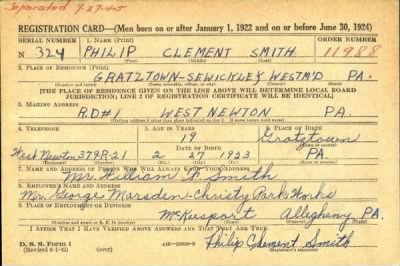 Separated 9-27-45
REGISTRATION CARD—(Men born on or after January 1, 1922 and on or before June 30, 1924)
SERIAL NUMBER 1. NAME (Print) ORDER NUMBER
N 324 PHILIP CLEMENT SMITH 11988
(First) (Middle) (Last)
2. PLACE OF RESIDENCE (Print)
GRATZTOWN-SEWICKLEY WESTM'D PA.
[THE PLACE OF RESIDENCE GIVEN ON THE LINE ABOVE WILL DETERMINE LOCAL BOARD
JURISDICTION; LINE 2 OF REGISTRATION CERTIFICATE WILL BE IDENTICAL]
3. MAILING ADDRESS
R.D#1 WEST NEWTON PA.
4. TELEPHONE 5. AGE IN YEARS 6. PLACE OF BIRTH
19 Gratztown
DATE OF BIRTH
West Newton 379R-21 2 27 1923 PA.
7. NAME AND ADDRESS OF PERSON WHO WILL ALWAYS KNOW YOUR ADDRESS
Mr. William Smith
8. EMPLOYER'S NAME AND ADDRESS
Mr. George Marsden-Christy Park Works
9. PLACE OF EMPLOYMENT OR BUSINESS
McKeesport Allegheny PA.
I AFFIRM THAT I HAVE VERIFIED ABOVE ANSWERS AND THAT THEY ARE TRUE.
D. S. S. Form 1
Philip Clement Smith